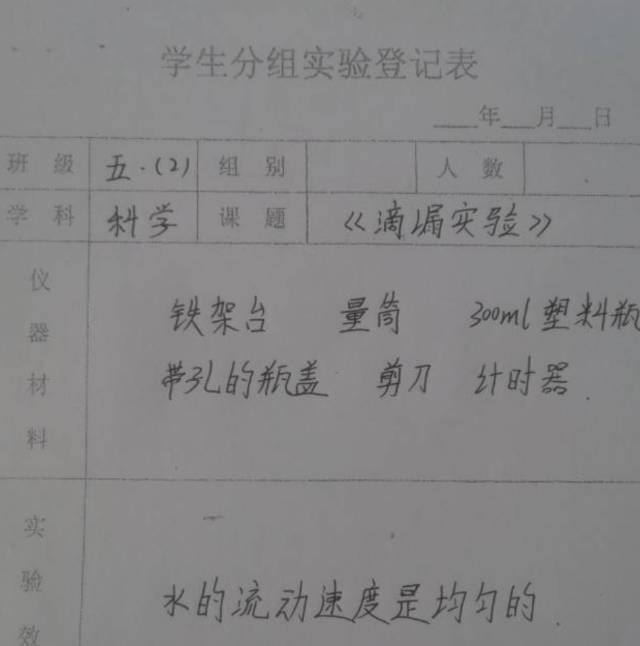 学生分组实验登记表
____年___月___日
班级 五.(2) 组别 人数
学科 科学 课题 《滴漏实验》
仪器材料
铁架台 量筒 300ml塑料瓶
带孔的瓶盖 剪刀 计时器.
实验效
水的流动速度是均匀的.